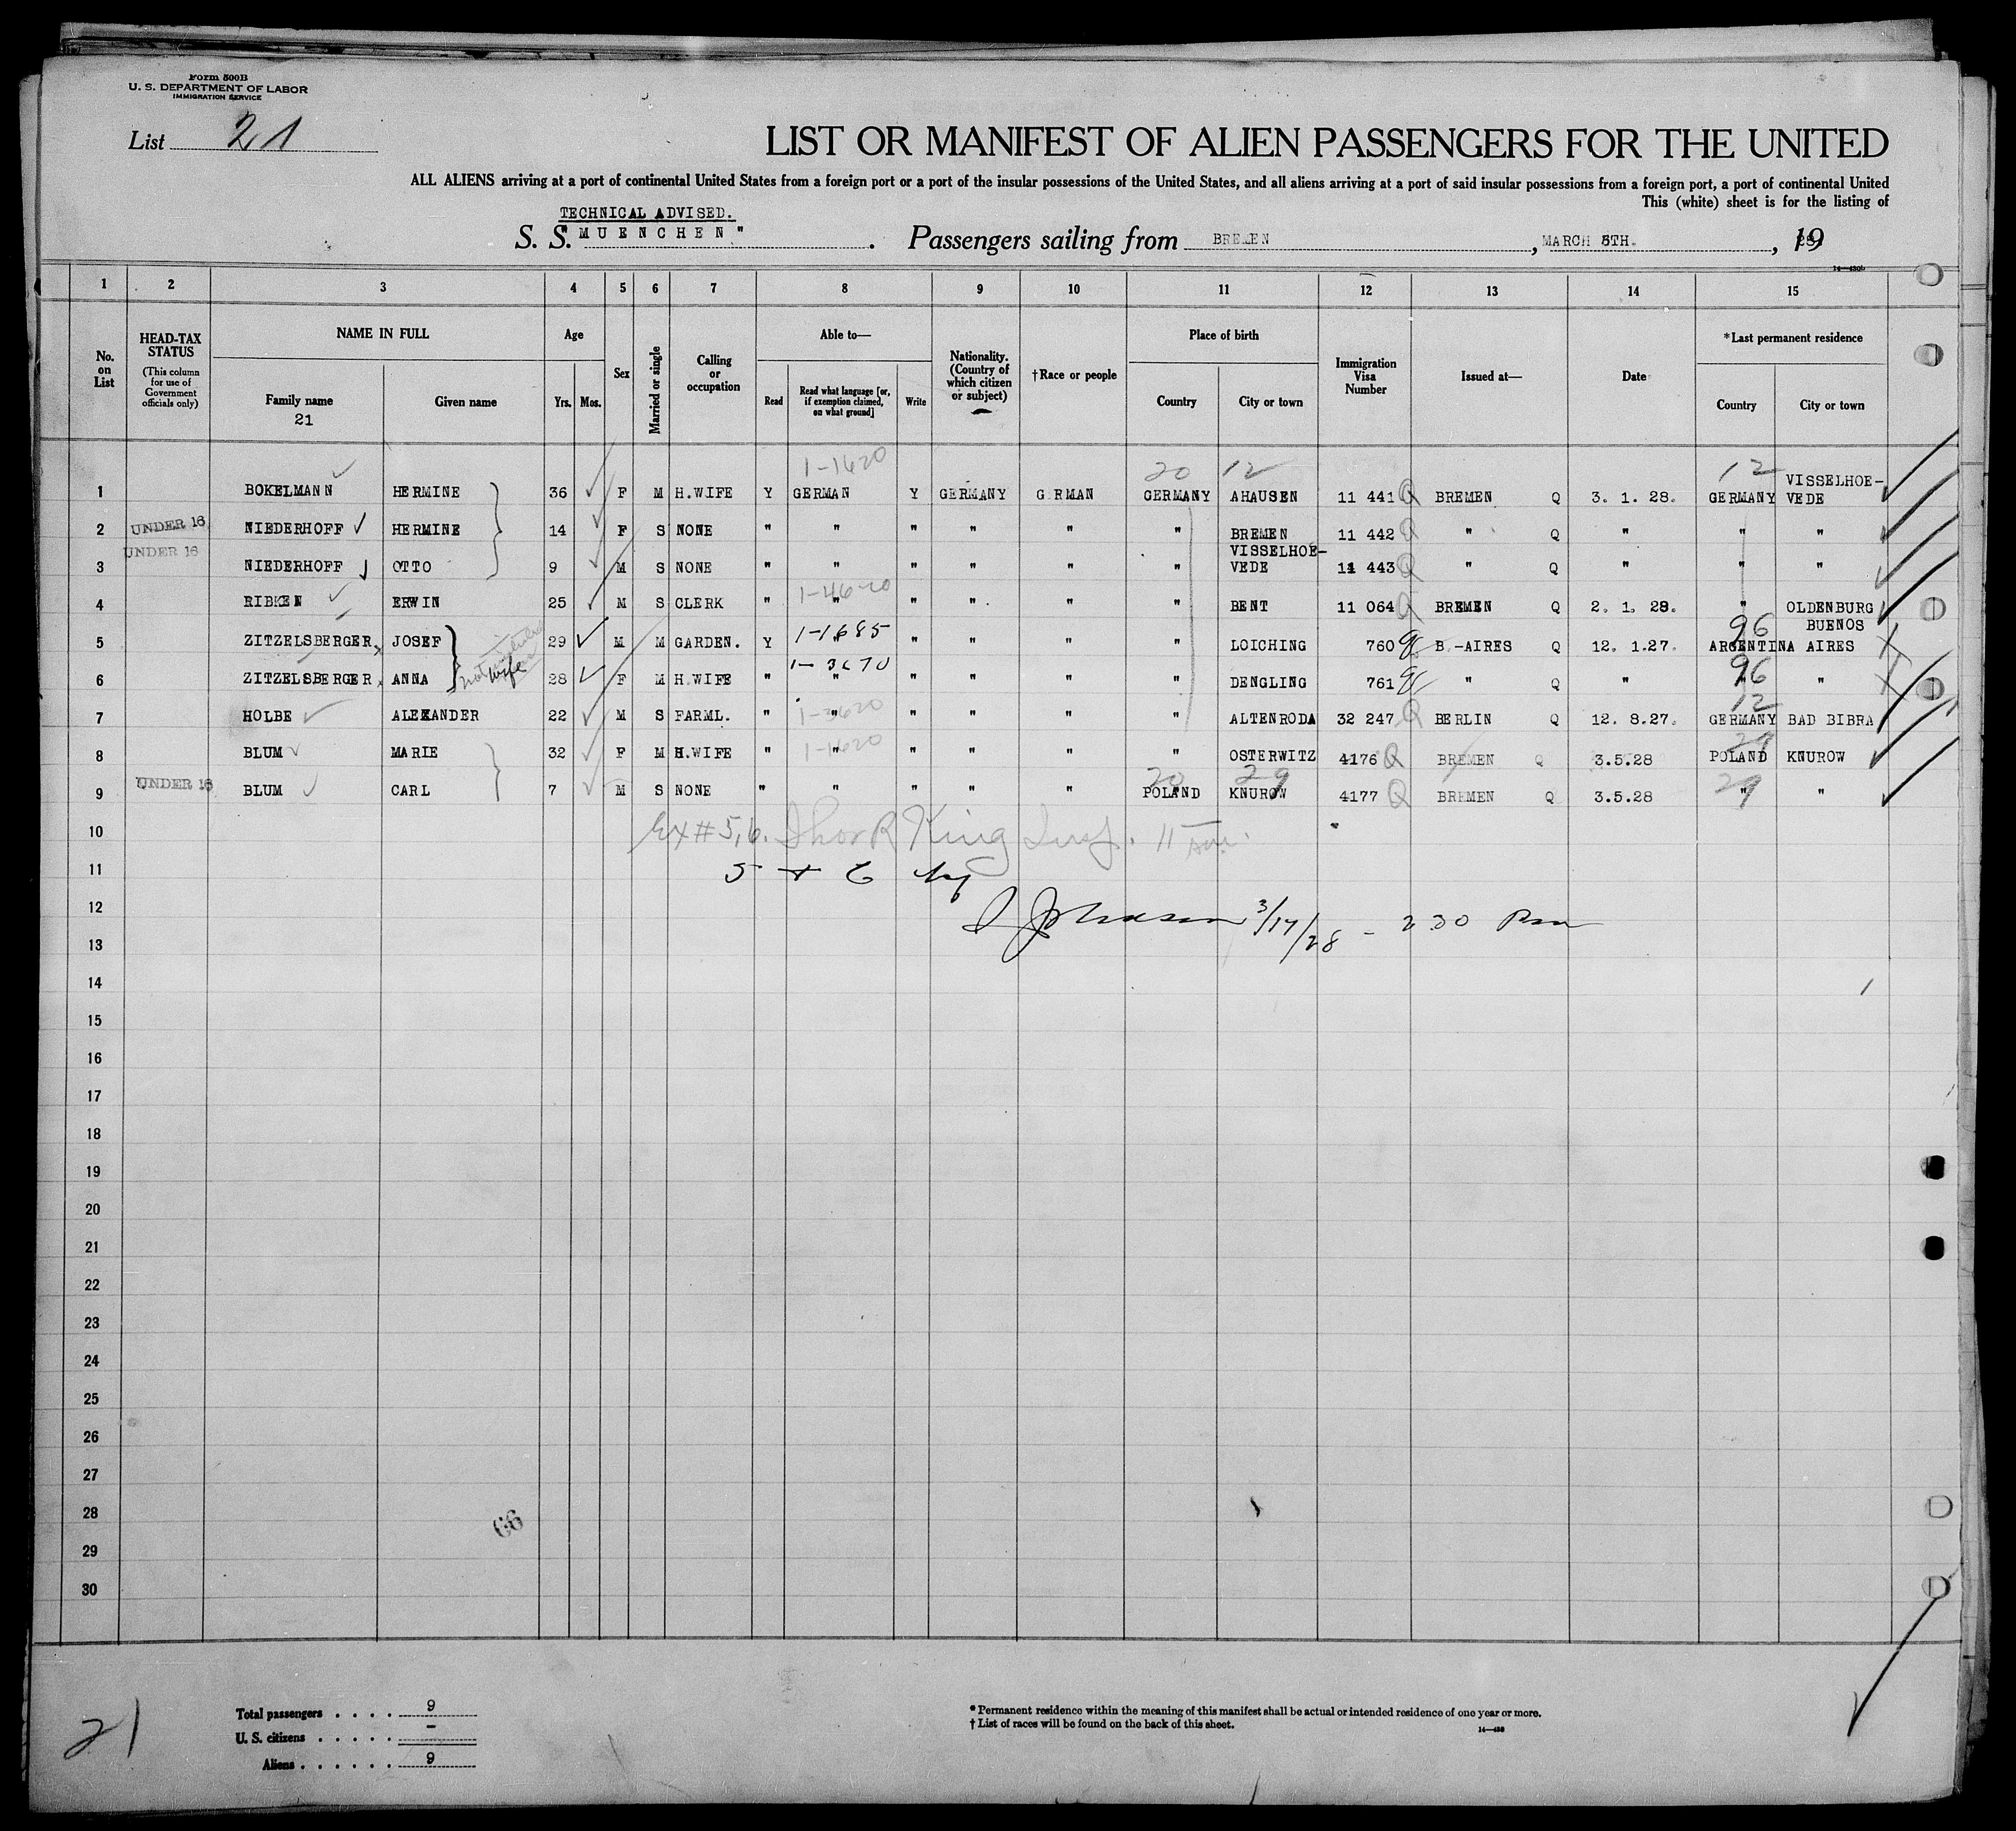 Form 500B
U. S. DEPARTMENT OF LABOR
IMMIGRATION SERVICE
List 21
LIST OR MANIFEST OF ALIEN PASSENGERS FOR THE UNITED
ALL ALIENS arriving at a port of continental United States from a foreign port or a port of the insular possessions of the United States, and all aliens arriving at a port of said insular possessions from a foreign port, a port of continental United
This (white) sheet is for the listing of
TECHNICAL ADVISED.
S. S. "MUENCHEN". Passengers sailing from BREMEN, MARCH 8TH., 19 28
14—430b
1 2 3 4 5 6 7 8 9 10 11 12 13 14 15
No. on List
HEAD-TAX STATUS (This column for use of Government officials only)
NAME IN FULL
Family name 21
Given name
Age
Yrs. Mos.
Sex
Married or single
Calling or occupation
Able to—
Read
Read what language [or, if exemption claimed, on what ground]
Write
Nationality. (Country of which citizen or subject)
†Race or people
Place of birth
Country City or town
Immigration Visa Number
Issued at—
Date
*Last permanent residence
Country City or town
1-1620 20 12 12
1 BOKELMANN HERMINE 36 F M H.WIFE Y GERMAN Y GERMANY GERMAN GERMANY AHAUSEN 11 441 Q BREMEN Q 3. 1. 28. GERMANY VISSELHOE-VEDE
2 UNDER 16 NIEDERHOFF HERMINE 14 F S NONE " " " " " " BREMEN 11 442 Q " Q " " "
3 UNDER 16 NIEDERHOFF OTTO 9 M S NONE " " " " " " VISSELHOE-VEDE 11 443 Q " Q " " "
1-4620
4 RIBKEN ERWIN 25 M S CLERK " " " " " " BENT 11 064 Q BREMEN Q 2. 1. 28. " OLDENBURG
1-1685 96
5 ZITZELSBERGER, JOSEF 29 M M GARDEN. Y " " " " " LOICHING 760 B.-AIRES Q 12. 1.27. ARGENTINA BUENOS AIRES
wife
1-3670 96
6 ZITZELSBERGER, ANNA 28 F M H.WIFE " " " " " " DENGLING 761 " Q " " "
1-3620 12
7 HOLBE ALEXANDER 22 M S FARML. " " " " " " ALTENRODA 32 247 Q BERLIN Q 12. 8.27. GERMANY BAD BIBRA
1-1620 29
8 BLUM MARIE 32 F M H.WIFE " " " " " " OSTERWITZ 4176 Q BREMEN Q 3.5.28 POLAND KNUROW
20 29 29
9 UNDER 16 BLUM CARL 7 M S NONE " " " " " POLAND KNUROW 4177 Q BREMEN Q 3.5.28 " "
10 Ex # 5,6. King Insp. 11
11 5 + 6 by
12 Johnson 3/17/28 - 2 30 Pm
13
14
15
16
17
18
19
20
21
22
23
24
25
26
27
28
66
29
30
21
Total passengers . . . . 9
U. S. citizens . . . . . –
Aliens . . . . . . 9
* Permanent residence within the meaning of this manifest shall be actual or intended residence of one year or more.
† List of races will be found on the back of this sheet.
14—430